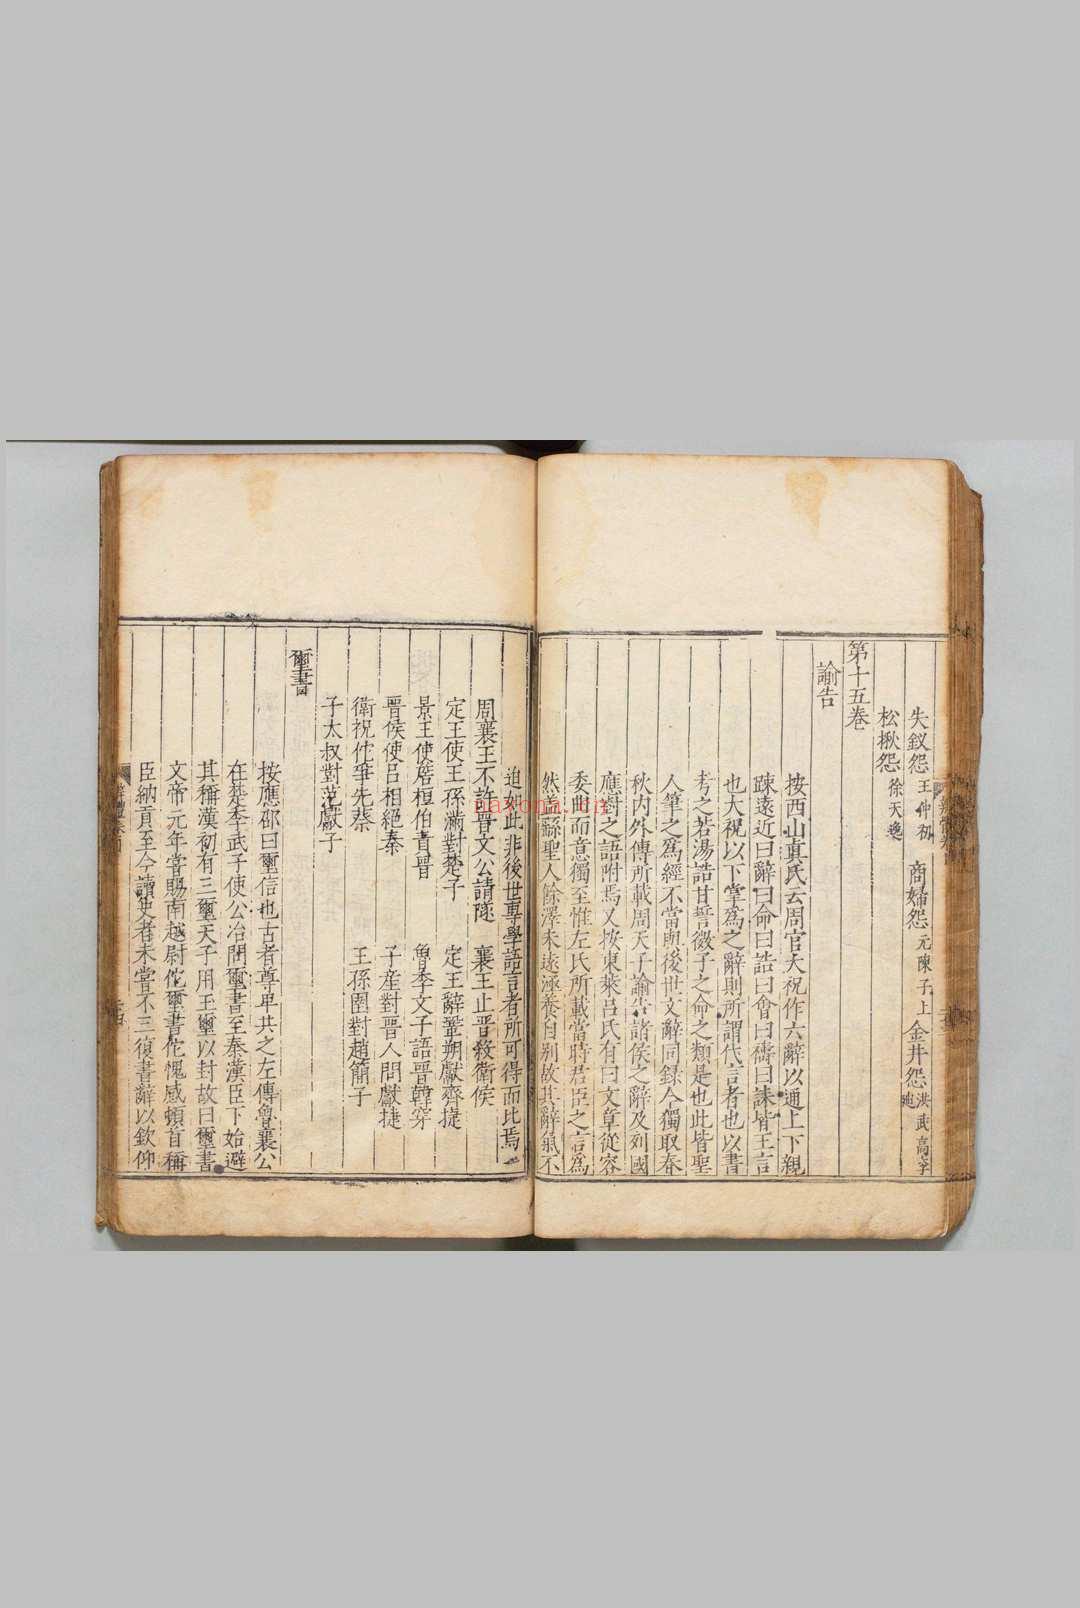 失釵怨王仲初 商婦怨元陳子上 金井怨洪武高季迪
松楸怨徐天逸
第十五卷
諭告
按西山真氏云周官大祝作六辭以通上下親
踈遠近曰辭曰命曰誥曰會曰禱曰誄皆王言
也大祝以下掌為之辭則所謂代言者也以書
考之若湯誥甘誓微子之命之類是也此皆聖
人筆之為經不當與後世文辭同錄今獨取春
秋内外傳所載周天子諭告諸侯之辭及列國
應對之語附焉又按東萊呂氏有曰文章從容
委曲而意獨至惟左氏所載當時君臣之言為
然盖繇聖人餘澤未遠涵養自别故其辭氣不
迫如此非後世專學語言者所可得而比焉
周襄王不許晉文公請隧 襄王止晉殺衛侯
定王使王孫滿對楚子 定王辭鞏朔獻齊捷
景王使詹桓伯責晉 魯季文子語晉韓穿
晉侯使呂相絕秦 子産對晉人問獻捷
衛祝佗爭先蔡 王孫圉對趙簡子
子太叔對范獻子
璽書
按應邵曰璽信也古者尊卑共之左傳魯襄公
在楚季武子使公冶問璽書至秦漢臣下始避
其稱漢初有三璽天子用玉璽以封故曰璽書
文帝元年嘗賜南越尉佗璽書佗愧感頓首稱
臣納貢至今讀史者未嘗不三復書辭以欽仰
nayona.cn